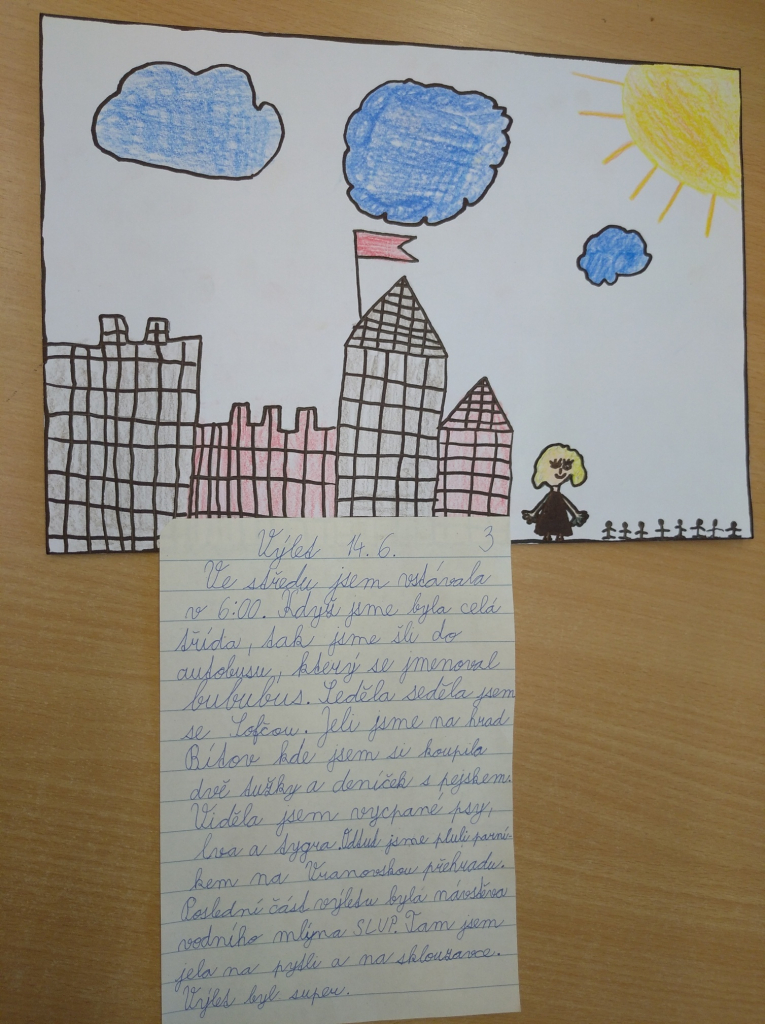 Výlet 14. 6. 3
Ve středu jsem vstávala
v 6:00. Když jsme byla celá
třída, tak jsme šli do
autobusu, který se jmenoval
bububus. Seděla seděla jsem
se Sofčou. Jeli jsme na hrad
Bítov kde jsem si koupila
dvě tužky a deníček s pejskem.
Viděla jsem vycpané psy,
lva a tygra. Odtud jsme pluli parní-
kem na Vranovskou přehradu.
Poslední část výletu bylá návstěva
vodního mlýna SLUP. Tam jsem
jela na pytli a na sklouzavce.
Výlet byl super.